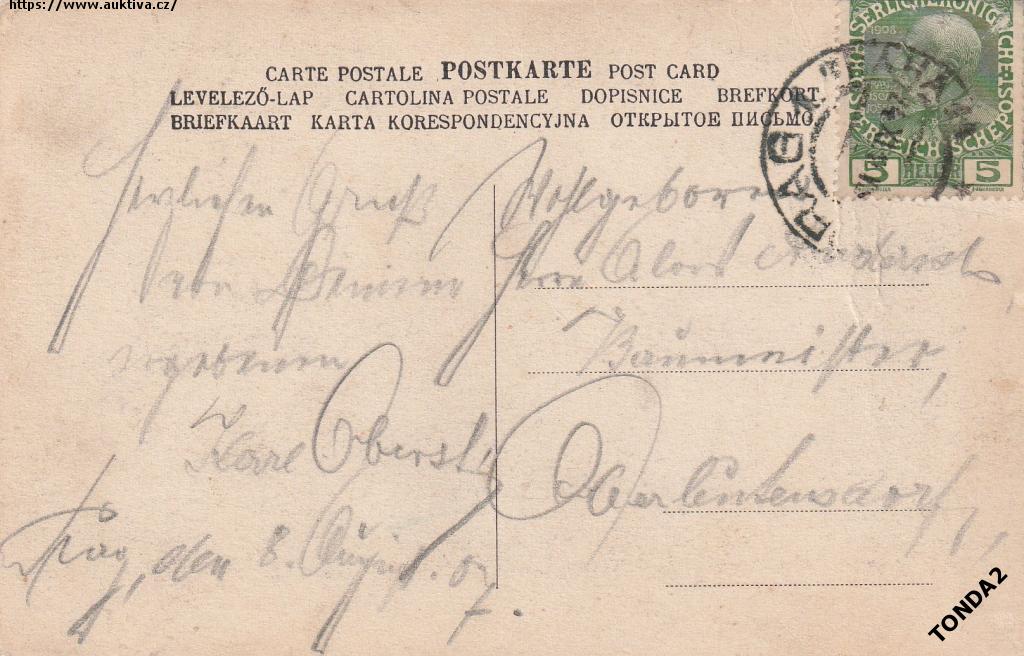 https://www.auktiva.cz/
CARTE POSTALE POSTKARTE POST CARD
LEVELEZŐ-LAP CARTOLINA POSTALE DOPISNICE BREFKORT
BRIEFKAART KARTA KORESPONDENCYJNA ОТКРЫТОЕ ПИСЬМО
1908
5 HELLER 5
PRAG
Herzlichen Gruß
von Ihrem
ergebenen
Karl Oberst
Prag, den 8. August. 07.
Wohlgeboren
Herrn Alois
Baumeister,
Oberleutensdorf,
TONDA2